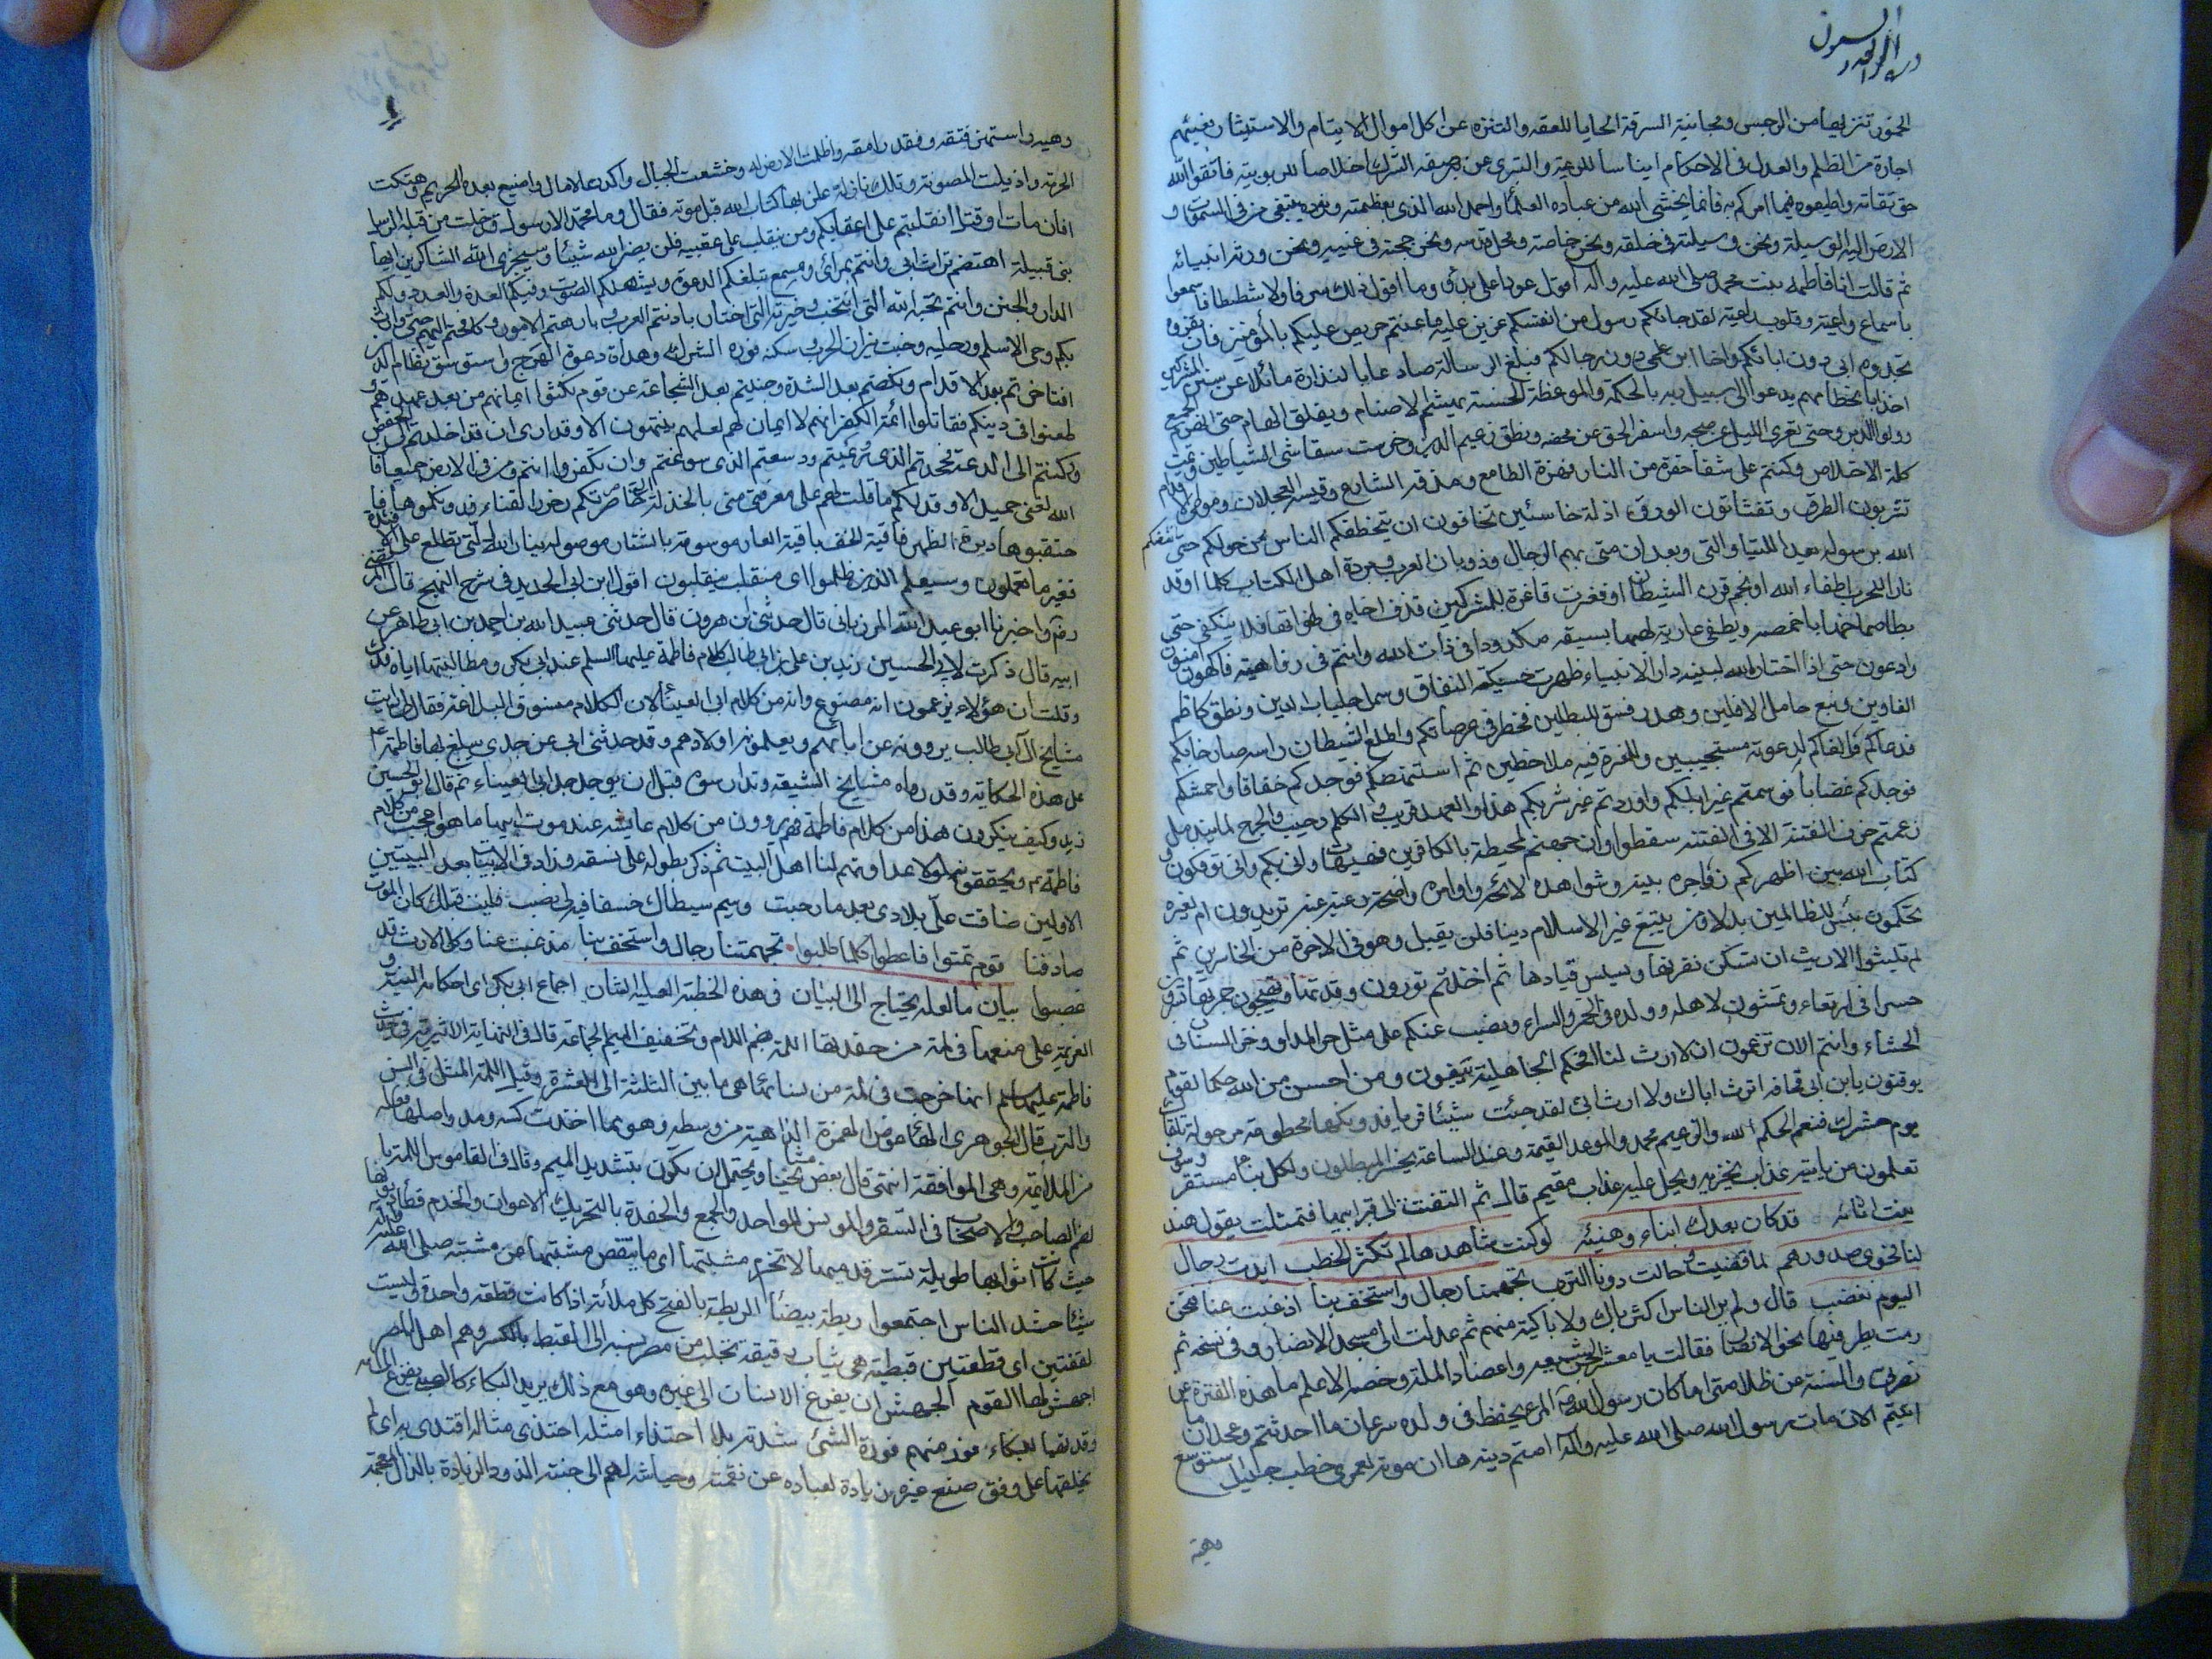 الخمور تنزيها من الرجس ومجانبة السرقة ايجابا للعفة والتنزه عن اكل اموال الايتام والاستيثار بفيئهم
اجارة من الظلم والعدل فى الاحكام ايناسا للرعية والتبرى عن صفة الشرك اخلاصا للربوبية فاتقوا الله
حق تقاته واطيعوه فيما امركم به فانما يخشى الله من عباده العلماء واحمدوا الله الذى بعظمته ونوره يبتغى من فى السموات و
الارض اليه الوسيلة ونحن وسيلته فى خلقه ونحن خاصته ومحل قدسه ونحن حجته فى غيبه ونحن ورثة انبيائه
ثم قالت انا فاطمة بنت محمد صلى الله عليه وآله اقول عودا على بدء وما اقول ذلك سرفا ولا شططا فاسمعوا
باسماع واعية وقلوب راعية لقد جائكم رسول من انفسكم عزيز عليه ما عنتم حريص عليكم بالمؤمنين فان تعزوه
تجدوه ابى دون ابائكم واخا ابن عمى دون رجالكم فبلغ الرسالة صادعا بالنذارة مائلا عن سنن المشركين
اخذا باكظامهم يدعو الى سبيل ربه بالحكمة والموعظة الحسنة يهشم الاصنام ويفلق الهام حتى انهزم الجمع
وولوا الدبر وحتى تعرى الليل عن صبحه واسفر الحق عن محضه ونطق زعيم الدين وخرست شقاشق الشياطين وتمت
كلمة الاخلاص وكنتم على شفا حفرة من النار نهزة الطامع ومذقة الشارع وقبسة العجلان وموطئ الاقدام
تشربون الطرق وتقتاتون الورق اذلة خاسئين تخافون ان يتخطفكم الناس من حولكم حتى انقذكم
الله برسوله بعد اللتيا والتى وبعد ان منى ببهم الرجال وذوبان العرب ومردة اهل الكتاب كلما اوقدوا
نارا للحرب اطفاء الله او نجم قرن الشيطان او فغرت فاغرة للمشركين قذف اخاه فى لهواتها فلا ينكفى حتى
يطا صماخها باخمصه ويطفى عادية لهبها بسيفه مكدودا فى ذات الله وانتم فى رفاهية فاكهون امنون
وادعون حتى اذا اختار الله لنبيه دار الانبياء ظهرت حسيكة النفاق وسمل جلباب الدين ونطق كاظم
الغاوين ونبغ خامل الافلين وهدر فنيق المبطلين فخطر فى عرصاتكم واطلع الشيطان راسه صارخا بكم
فدعاكم فالفاكم لدعوته مستجيبين وللغرة فيه ملاحظين ثم استنهضكم فوجدكم خفافا واحمشكم
فوجدكم غضابا فوسمتم غير ابلكم واوردتم غير شربكم هذا والعهد قريب والكلم رحيب والجرح لما يندمل
زعمتم خوف الفتنة الا فى الفتنة سقطوا وان جهنم لمحيطة بالكافرين فهيهات وانى بكم وانى تؤفكون و
كتاب الله بين اظهركم زواجره بينة وشواهده لائحة واوامره واضحة ارغبة عنه تريدون ام بغيره
تحكمون بئس للظالمين بدلا ومن يبتغ غير الاسلام دينا فلن يقبل وهو فى الاخرة من الخاسرين ثم
لم تلبثوا الا ريث ان تسكن نفرتها ويسلس قيادها ثم اخذتم تورون وقدتها وتهيجون جمرتها
حسوا فى ارتغاء وتمشون لاهله وولده فى الخمر والسراء ونصبر منكم على مثل حز المدى ووخز السنان فى
الحشاء وانتم الان تزعمون ان لا ارث لنا افحكم الجاهلية تبغون ومن احسن من الله حكما لقوم
يوقنون يا بن ابى قحافه اترث اباك ولا ارث ابى لقد جئت شيئا فريا فدونكها مخطومة مرحولة تلقاك
يوم حشرك فنعم الحكم الله والزعيم محمد والموعد القيمة وعند الساعة يخسر المبطلون ولكل نبا مستقر وسوف
تعلمون من ياتيه عذاب يخزيه ويحل عليه عذاب مقيم قال ثم التفتت الى قبر ابيها فتمثلت بقول هند
بنت اثاثه قد كان بعدك انباء وهنبثه لو كنت شاهدها لم تكثر الخطب ابدت رجال
لنا نجوى صدورهم لما قضيت وحالت دونك الترب تجهمتنا رجال واستخف بنا اذ غبت عنا فنحن
اليوم نغضب قال ولم ير الناس اكثر باك ولا باكية منهم ثم عدلت الى مسجد الانصار وفى نسخة ثم
رمت بطرفها نحو الانصار فقالت يا معشر البقية واعضاد الملة وحضنة الاسلام ما هذه الفترة عن
نصرتى والسنة عن ظلامتى اما كان رسول الله ص المرء يحفظ فى ولده سرعان ما احدثتم وعجلان ما
اتيتم الان مات رسول الله صلى الله عليه وآله امتم دينه ها ان موته لعمرى خطب جليل استوسع
وهيه
وهيه واستنهر فتقه وفقد راتقه واظلمت الارض له وخشعت الجبال واكدت الامال واضيع بعده الحريم وهتكت
الحرمة واذيلت المصونة وتلك نازلة علن بها كتاب الله قبل موته فقال وما محمد الا رسول قد خلت من قبله الرسل
افان مات او قتل انقلبتم على اعقابكم ومن ينقلب على عقبيه فلن يضر الله شيئا وسيجزى الله الشاكرين ايها
بنى قيلة اهتضم تراث ابى وانتم بمراى ومسمع تبلغكم الدعوة ويشملكم الصوت وفيكم العدة والعدد ولكم
الدار والجنن وانتم نخبة الله التى انتخب وخيرته التى اختار بادئتم العرب وبادهتم الامور وكافحتم البهم حتى دارت
بكم رحى الاسلام ودر حلبه وخبت نيران الحرب وسكنت فورة الشرك وهدات دعوة الهرج واستوسق نظام الدين
افتاخرتم بعد الاقدام ونكصتم بعد الشدة وجبنتم بعد الشجاعة عن قوم نكثوا ايمانهم من بعد عهدهم و
طعنوا فى دينكم فقاتلوا ائمة الكفر انهم لا ايمان لهم لعلهم ينتهون الا وقد ارى ان قد اخلدتم الى الخفض
وركنتم الى الدعة فمججتم الذى وعيتم ودسعتم الذى سوغتم وان تكفروا انتم ومن فى الارض جميعا فان
الله لغنى حميد الا وقد قلت لكم ما قلت لهم على معرفة منى بالخذلة التى خامرتكم وخور القناة فدونكموها
فاحتقبوها دبرة الظهر ناقبة الخف باقية العار موسومة بالشنار موصولة بنار الله التى تطلع على الافئدة
فبعين الله ما تعملون وسيعلم الذين ظلموا اى منقلب ينقلبون اقول ابن ابى الحديد فى شرح النهج قال المرتضى
رض واخبرنا ابو عبد الله المرزبانى قال حدثنى بن هرون قال حدثنى عبيد الله بن احمد بن ابى طاهر عن
ابيه قال ذكرت لابى الحسين زيد بن على بن ابى طالب كلام فاطمة عليها السلم عند ابى بكر ومطالبتها اياه فدك
وقلت ان هؤلاء يزعمون انه مصنوع وانه من كلام ابى العيناء لان الكلام منسوق البلاغة فقال لى رايت
مشايخ آل ابى طالب يروونه عن ابائهم ويعلمونه اولادهم وقد حدثنى ابى عن جدى يبلغ بها فاطمة ع
على هذه الحكاية وقد رواه مشايخ الشيعه وتدارسوه قبل ان يوجد جد ابى العيناء ثم قال ابو الحسين
زيد وكيف ينكرون هذا من كلام فاطمة وهم يروون من كلام عايشه عند موت ابيها ما هو اعجب من كلام
فاطمة ع ويحققونه لولا عداوتهم لنا اهل البيت ثم ذكر بطوله على نسقه وزاد فى الابيات بعد البيتين
الاولين ضاقت على بلادى بعد ما رحبت وسيم سبطاك خسفا فيه لى نصب فليت قبلك كان الموت
صادفنا قوم تمنوا فاعطوا كلما طلبوا تجهمتنا رجال واستخف بنا مذ غبت عنا وكل الارث قد
غصبوا بيان ما لعله يحتاج الى البيان فى هذه الخطبة العلية الشان اجماع ابى بكر اى احكامه النية و
العزيمة على منعها فى لمة من حفدتها اللمة بضم اللام وتخفيف الميم الجماعة قال فى النهاية الاثيرية فى حديث
فاطمة عليها السلم انها خرجت فى لمة من نسائها هى ما بين الثلثة الى العشرة وقيل اللمة المثل فى السن
والترب قال الجوهرى الهاء عوض الهمزة الذاهبة من وسطه وهو مما اخذت كسه ومد واصلها فعلة
من الملائمة وهى الموافقة انتهى قال بعض مشايخنا ويحتمل ان يكون بتشديد الميم وقال فى القاموس اللمة
بالضم الصاحب والاصحاب فى السفر والمونس للواحد والجمع والحفدة بالتحريك الاعوان والخدم تطا ذيولها
حيث كانت اثوابها طويلة تستر قدميها لا تخرم مشيتها اى ما ينقص مشيتها من مشيته صلى الله عليه وآله
شيئا حشد الناس اجتمعوا ريطة بيضاء الريطة بالفتح كل ملائة اذا كانت قطعة واحدة وليست
لفقتين اى قطعتين قبطية هى ثياب رقيقة تجلب من مصر نسبة الى القبط بالكسر وهم اهل مصر
اجهش لها القوم الجهش ان يفزع الانسان الى غيره وهو مع ذلك يريد البكاء كالصبى يفزع الى امه
وقد تهيا للبكاء فورتهم فورة الشئ شدته بلا احتذاء امثله احتذى مثاله اقتدى به اى لم
يخلقها على وفق صنع غيره زيادة لعباده عن نقمته وحياشة لهم الى جنته الذود والزيادة بالذال المعجمة